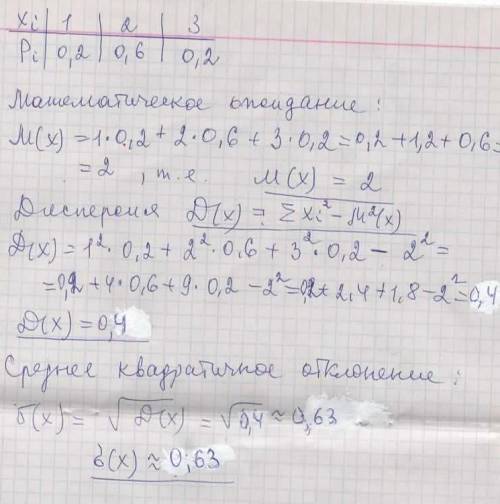 xi | 1 | 2 | 3
Pi | 0,2 | 0,6 | 0,2
Математическое ожидание:
M(x) = 1·0,2 + 2·0,6 + 3·0,2 = 0,2 + 1,2 + 0,6 =
= 2, т.е. M(x) = 2
Дисперсия D(x) = Σxi² - M²(x)
D(x) = 1²·0,2 + 2²·0,6 + 3²·0,2 - 2² =
= 0,2 + 4·0,6 + 9·0,2 - 2² = 0,2 + 2,4 + 1,8 - 2² = 0,4
D(x) = 0,4
Среднее квадратичное отклонение:
σ(x) = √D(x) = √0,4 ≈ 0,63
σ(x) ≈ 0,63